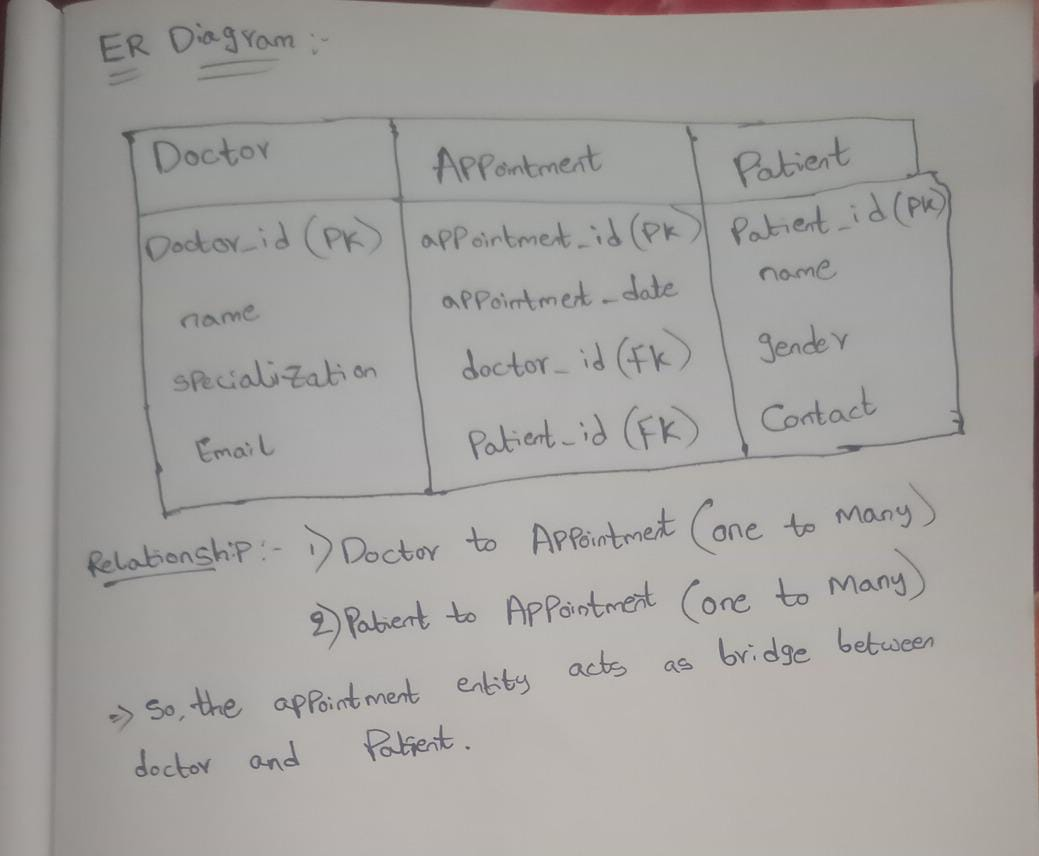 ER Diagram :-
Doctor Appointment Patient
Doctor_id (PK) appointment_id (PK) Patient_id (PK)
name appointment_date name
specialization doctor_id (FK) gender
Email Patient_id (FK) Contact
Relationship :- 1) Doctor to Appointment (one to many)
2) Patient to Appointment (one to Many)
=> So, the appointment entity acts as bridge between
doctor and Patient.